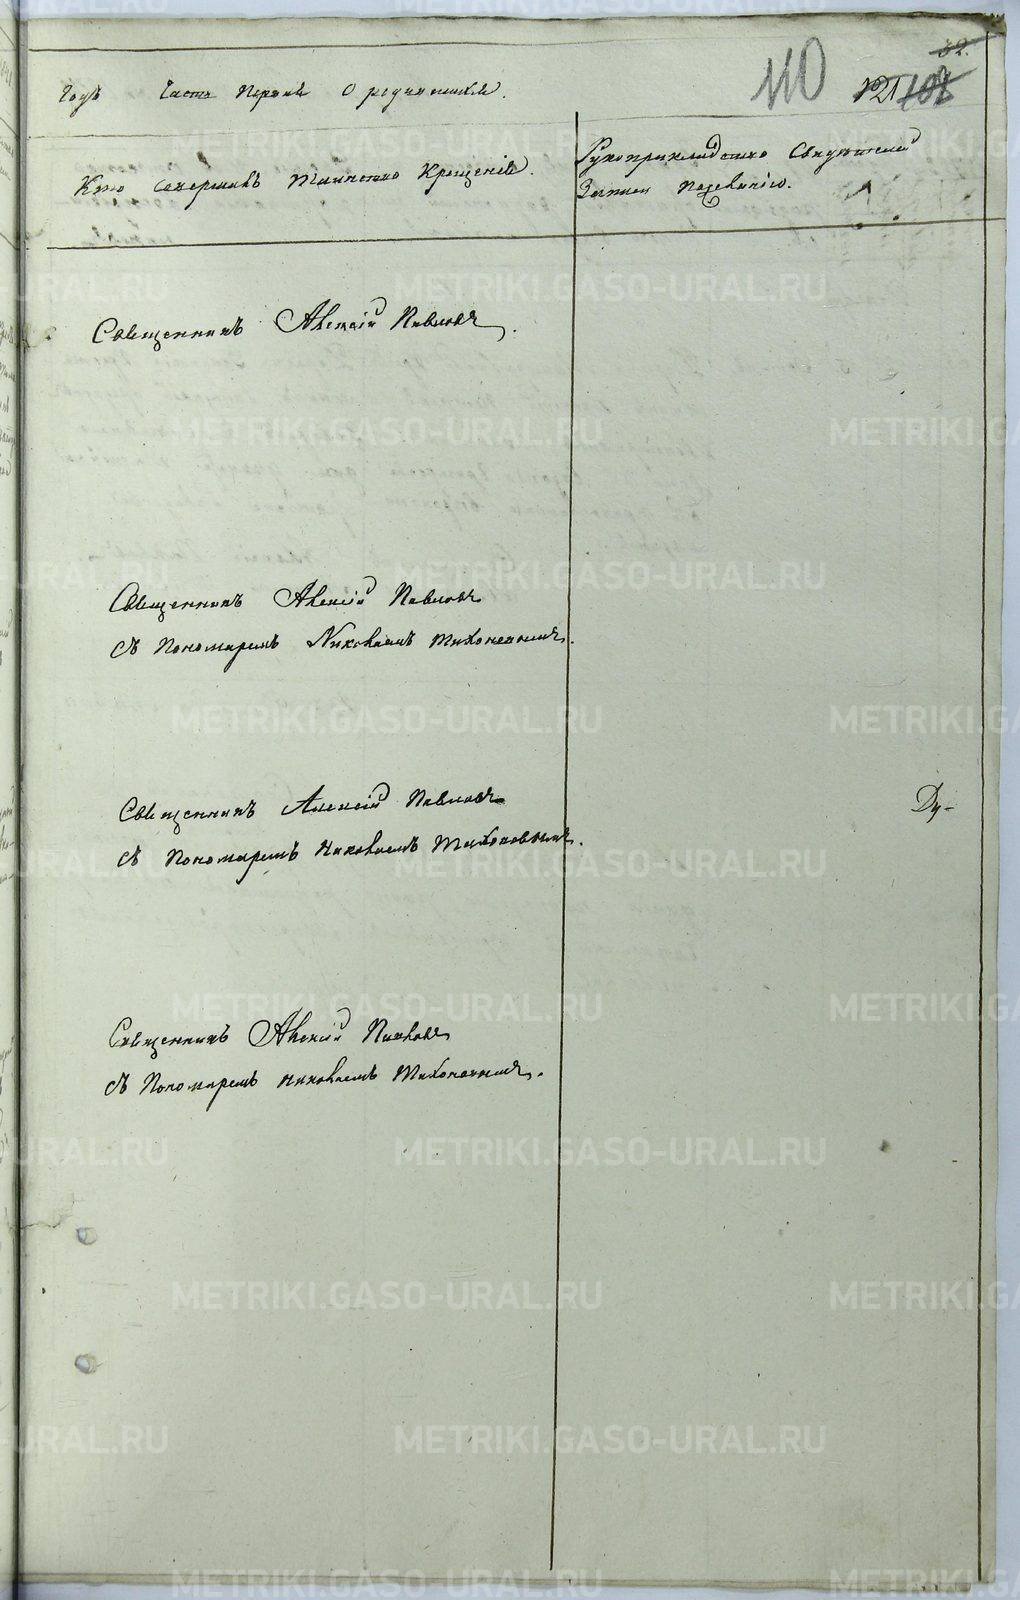 32.
110
121 107
Годъ Часть Первая О родившихся.
Кто совершалъ таинство Крещенія.
Рукоприкладство Свидѣтелей
Записи По желанію.
Священникъ Алексій Павловъ.
Священникъ Алексій Павловъ
съ Пономаремъ Николаемъ Тихоновымъ.
Священникъ Алексій Павловъ
Ду-
съ Пономаремъ Николаемъ Тихоновымъ.
Священникъ Алексій Павловъ
съ Пономаремъ Николаемъ Тихоновымъ.
METRIKI.GASO-URAL.RU